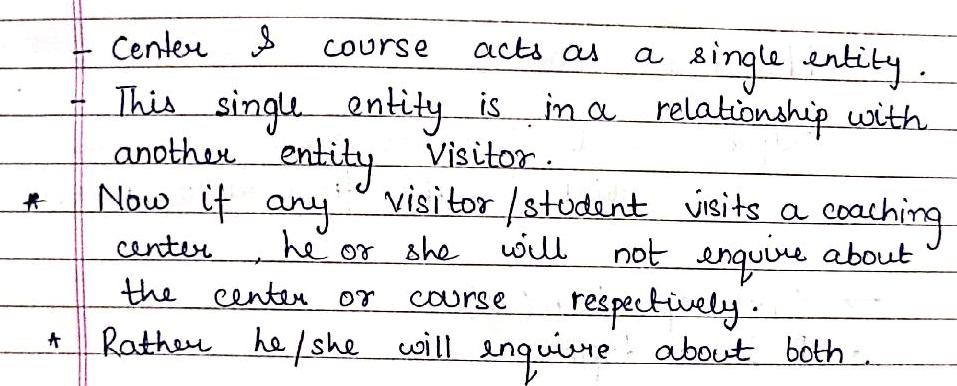 - Center & course acts as a single entity.
- This single entity is in a relationship with
another entity Visitor.
* Now if any visitor/student visits a coaching
center, he or she will not enquire about
the center or course respectively.
* Rather he/she will enquire about both.